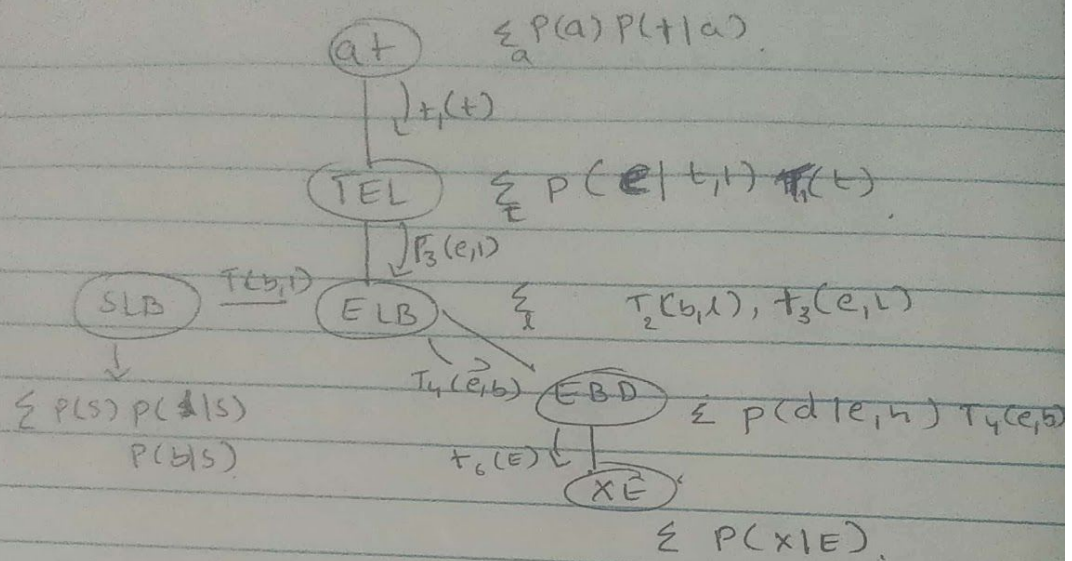 at Σ_a P(a) P(t|a).
t₁(t)
TEL Σ_t P(e|t,l) T₁(t).
P₃(e,l)
SLB T(b,l) ELB Σ_l T₂(b,l), t₃(e,l)
T₄(e,b) EBD Σ p(d|e,h) T₄(e,b)
Σ P(s) P(l|s)
P(b|s)
t₆(E)
XE
Σ P(x|E).